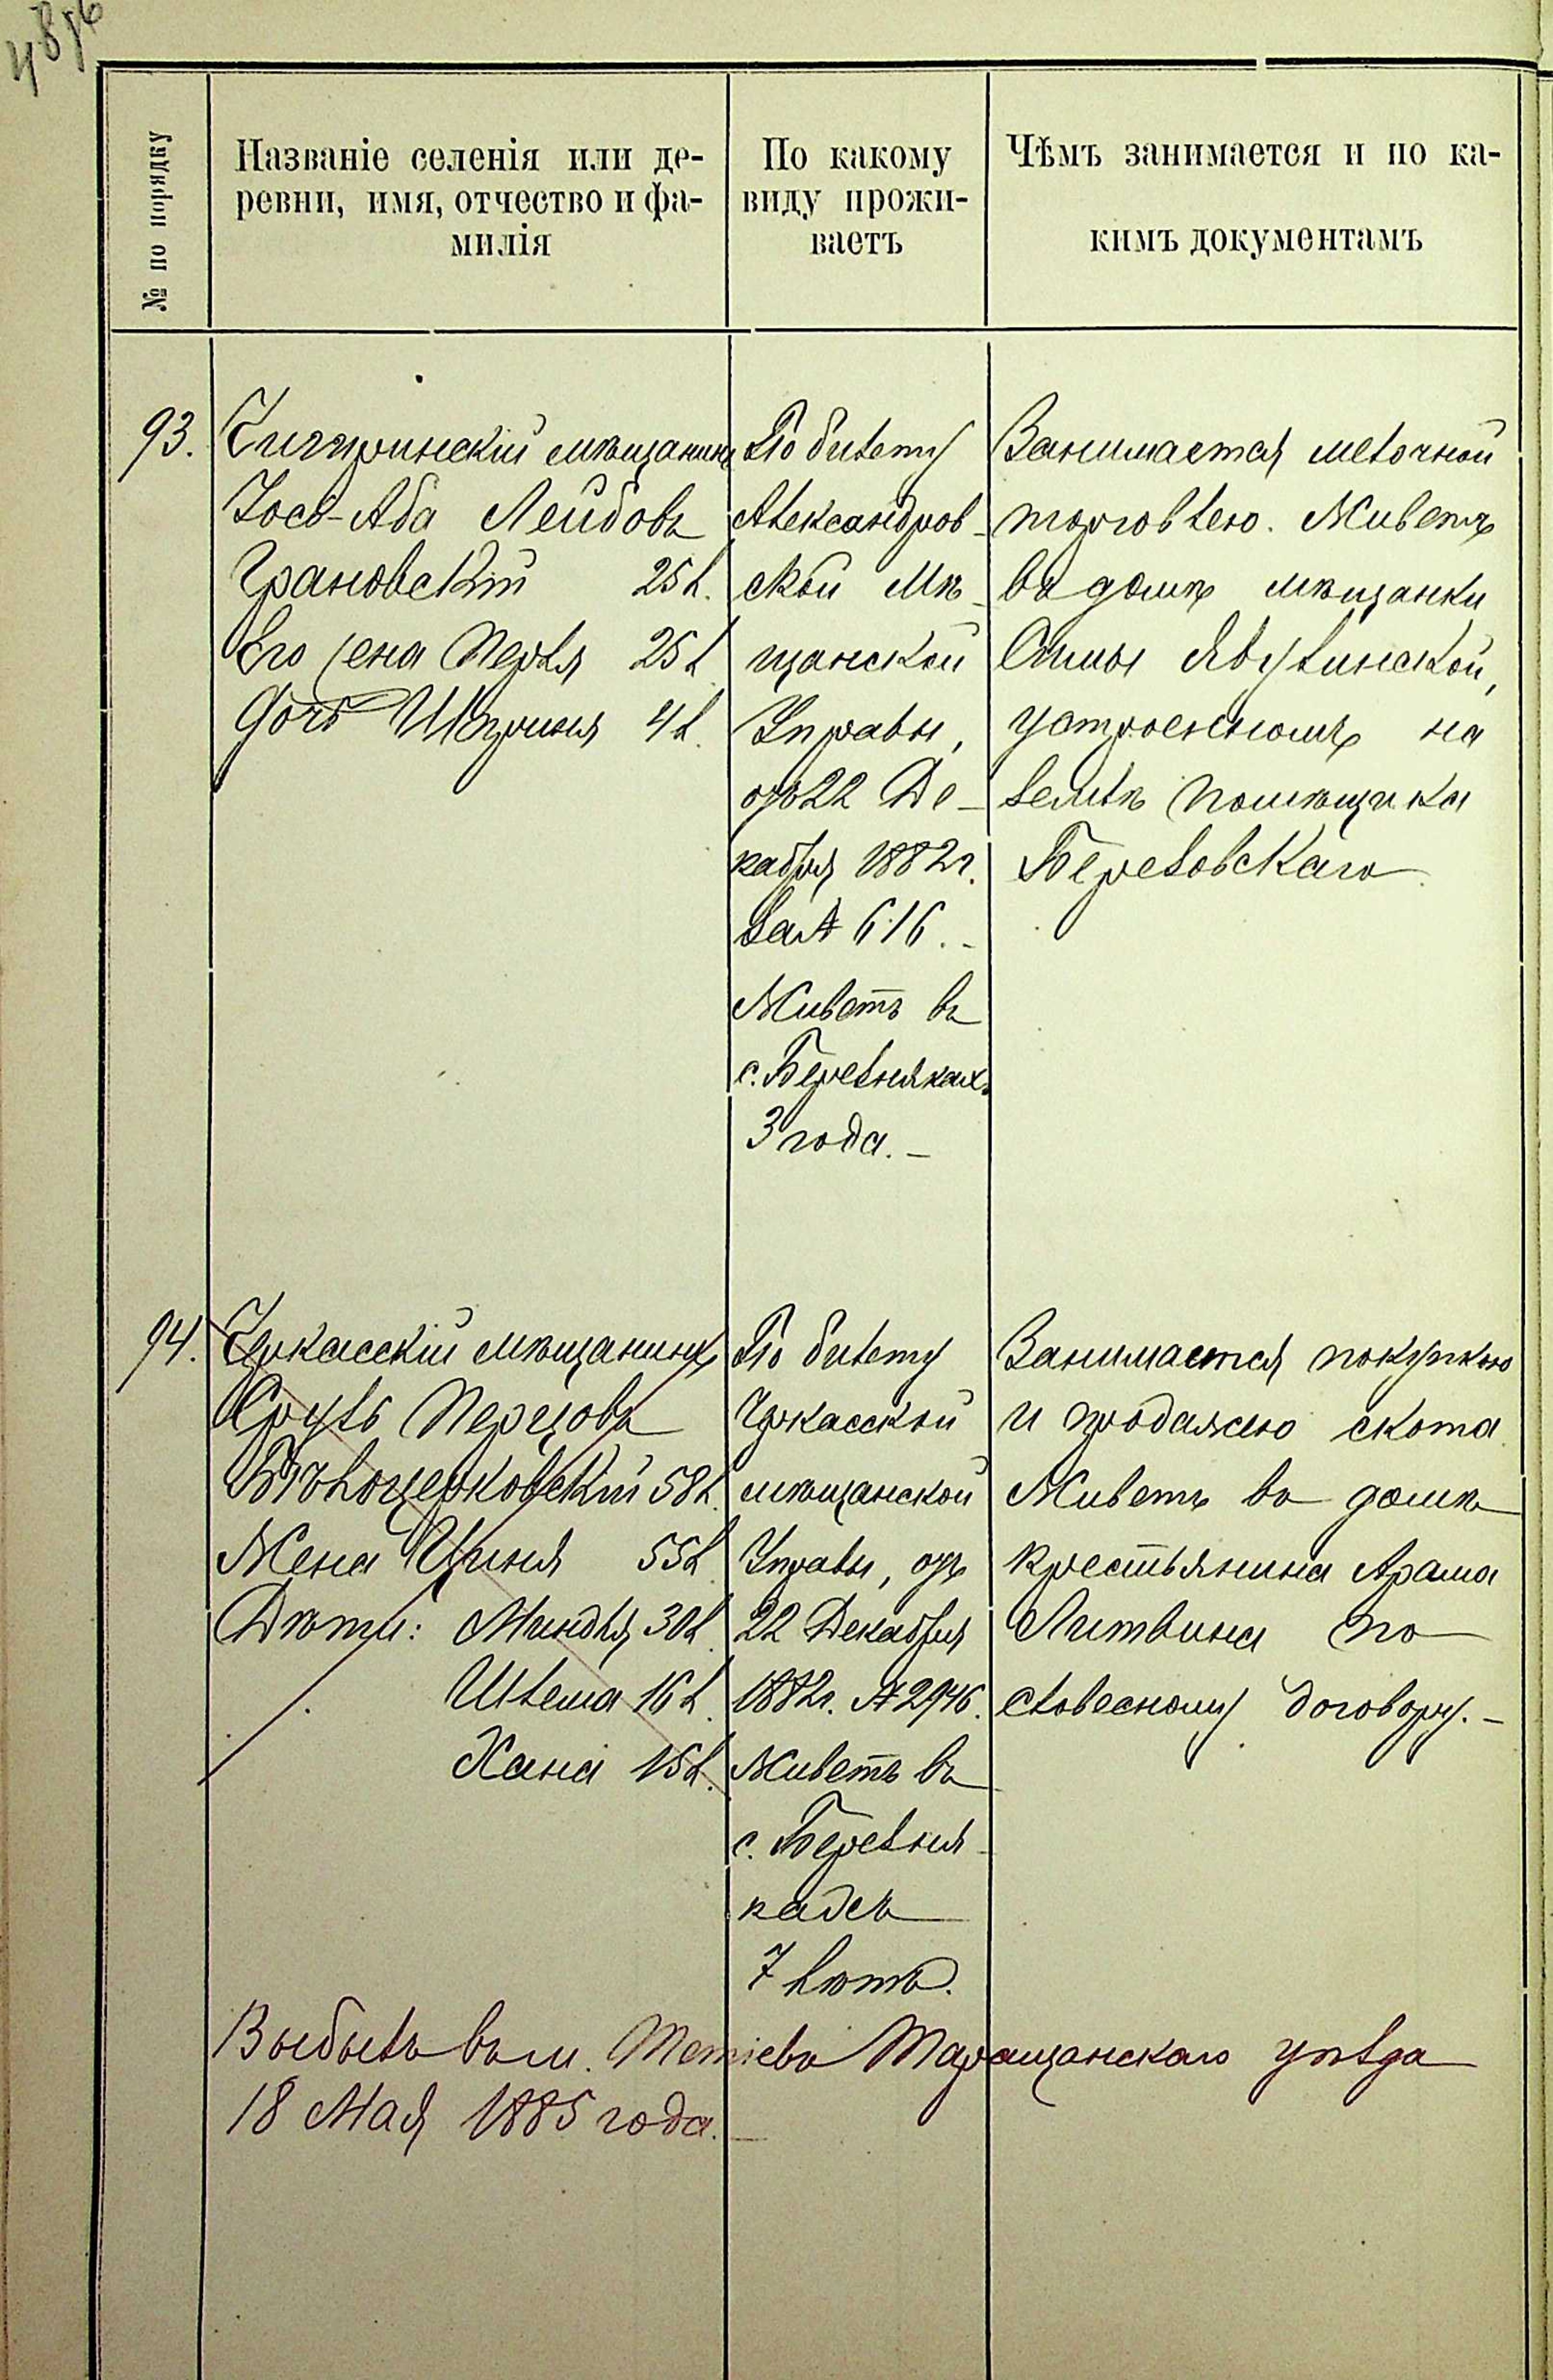 № по порядку
Названіе селенія или де-
ревни, имя, отчество и фа-
милія
По какому
виду прожи-
ваетъ
Чѣмъ занимается и по ка-
кимъ документамъ
93.
Чигиринскій мѣщанинъ
Іось-Аба Лейбовъ
Грановскій 25 л.
Его жена Перля 25 л.
Дочь 4 л.
По билету
Александров-
ской Мѣ-
щанской
Управы,
отъ 22 Де-
кабря 1882 г.
за № 616.-
Живетъ въ
с. Березнякахъ
3 года.-
Занимается мелочной
торговлею. Живетъ
въ домѣ мѣщанки
Явузинской,
устроенномъ на
землѣ помѣщика
Березовскаго
94.
Черкасскій мѣщанинъ
Сруль Перцовъ
Бѣлоцерковскій 58 л.
Жена Цирля 55 л.
Дѣти: Миндля 30 л.
Шлема 16 л.
Хана 15 л.
По билету
Черкасской
мѣщанской
Управы, отъ
22 Декабря
1882 г. № 2946.
Живетъ въ
с. Березня-
кахъ
7 лѣтъ.
Занимается покупкою
и продажею скота
Живетъ въ домѣ
крестьянина Арама
Литвина по
словесному договору.-
Выбылъ въ м. Тетіевъ Таращанскаго уѣзда
18 Мая 1885 года.-